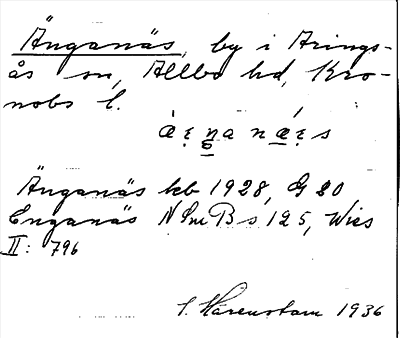 Änganäs, by i Arings-
ås sn, Allbo hd, Kro-
nobs l.
Änganäs kb 1928, G 20
Enganäs N Sm B s 125, Wies
II: 796
S. Härenstam 1936